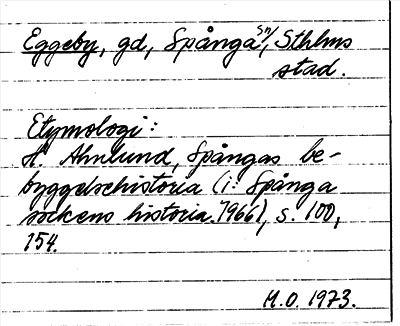 Eggeby, gd, Spånga sn, Sthlms
stad.
Etymologi:
H. Ahnlund, Spångas be-
byggelsehistoria (i: Spånga
sockens historia. 1966), s. 100,
154.
M.O. 1973.